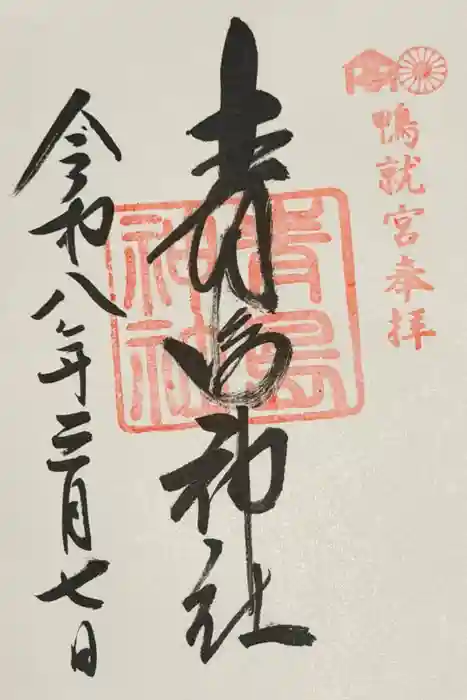 鴨就宮奉拝
青島神社
青島神社
令和八年三月七日